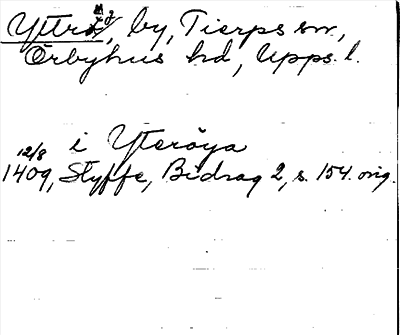 Yttrö, by, Tierps sn,
Örbyhus hd, Upps. l.
i Yteröya
12/8
1409, Styffe, Bidrag 2, s. 154. orig.